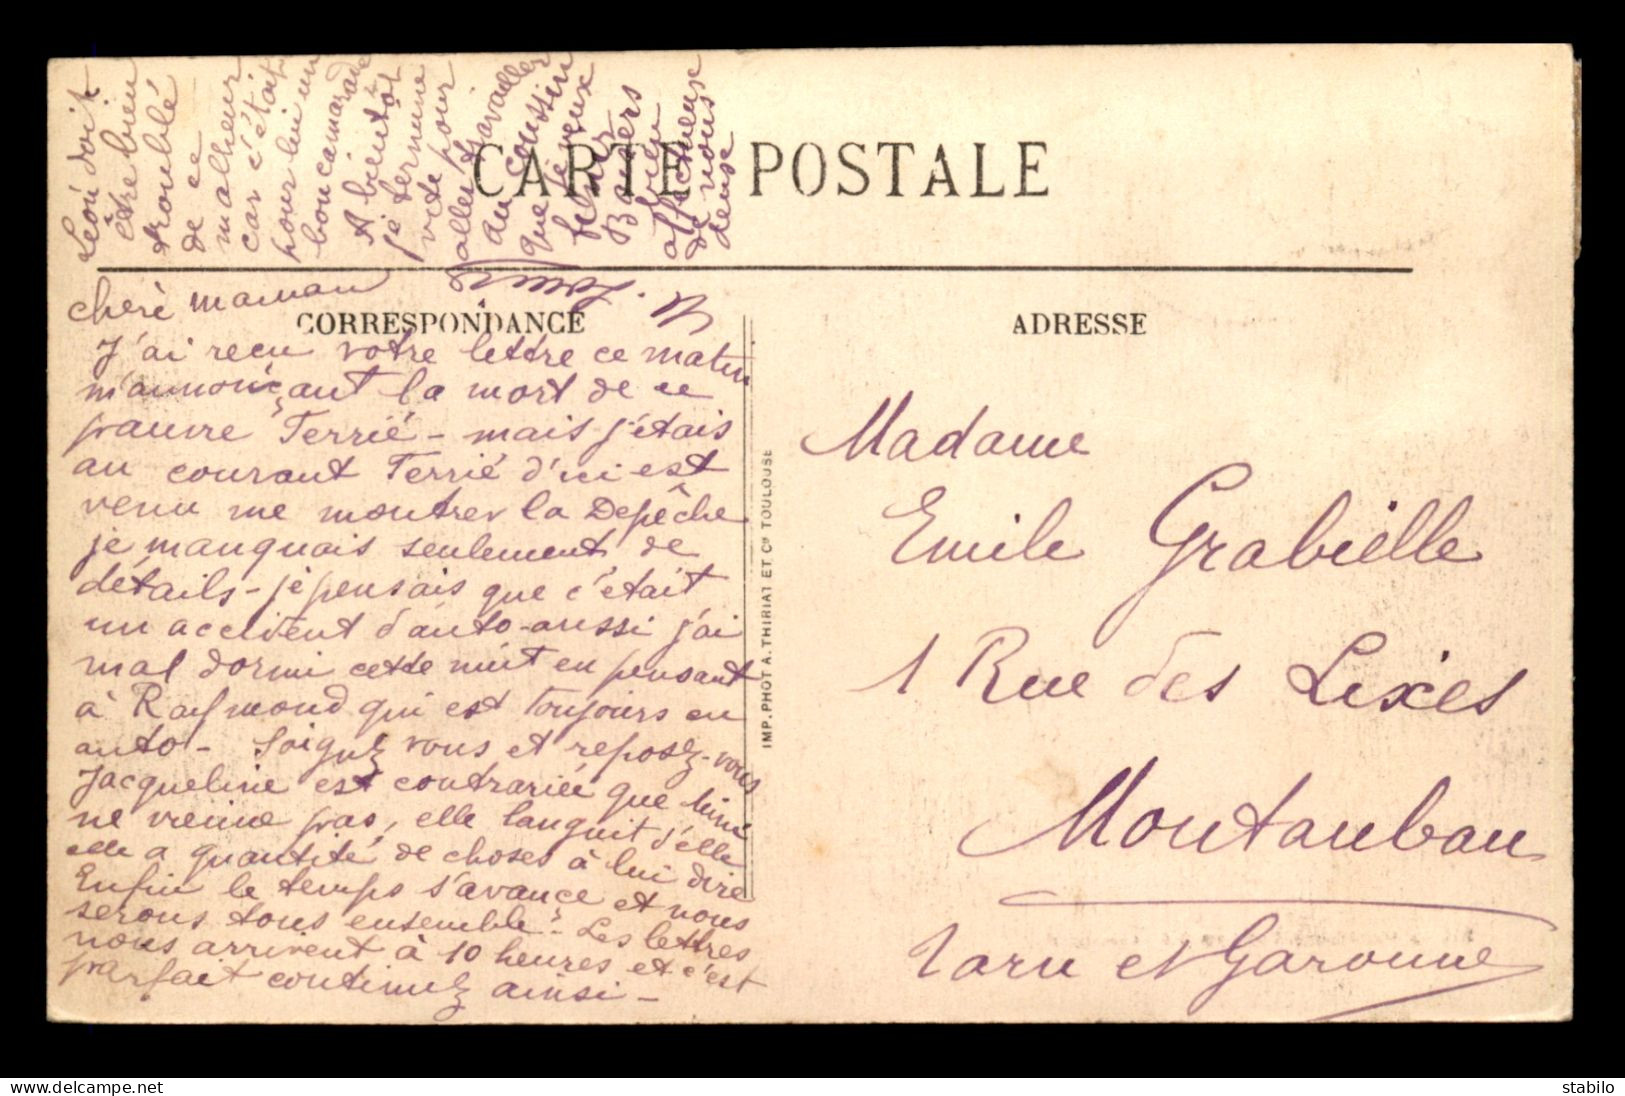 CARTE POSTALE
CORRESPONDANCE
ADRESSE
cheré maman
J'ai recu votre lettre ce matin
m'annonçant la mort de ce
pauvre Terrié - mais j'étais
au courant Terrié d'ici est
venu me montrer la Depêche
je manquais seulement de
détails - je pensais que c'était
un accident d'auto - aussi j'ai
mal dormi cette nuit en pensant
à Raymond qui est toujours en
auto - Soignez vous et reposez-vous
Jacqueline est contrariée que
ne vienne pas, elle languit d'elle
elle a quantité de choses à lui dire
Enfin le temps s'avance et nous
serons tous ensemble - Les lettres
nous arrivent à 10 heures et c'est
parfait continuez ainsi -
Léon doit
être bien
troublé
de ce
malheur
car c'était
pour lui un
bon camarade
A bientôt
je termine
vite pour
aller travailler
au coussin
que je veux
finir
Baisers
bien
affectueux
de nous
deux
IMP. PHOT A. THIRIAT ET Cie TOULOUSE
Madame
Emile Grabielle
1 Rue des Lixes
Montauban
Tarn et Garonne
stabilo